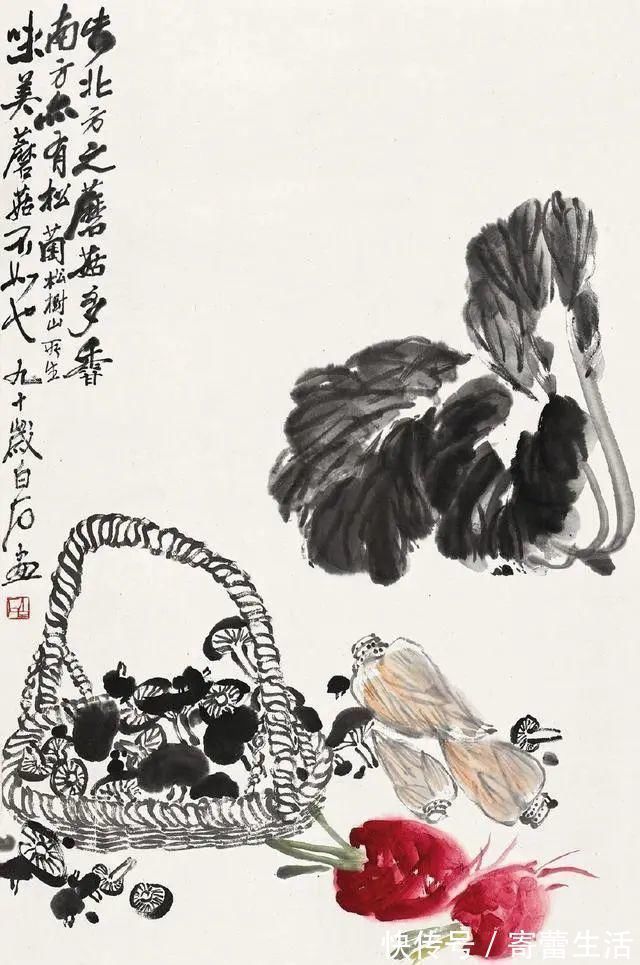 北方之蘑菇多香
南方亦有松菌松樹山所生
味美蘑菇不如也 九十歲白石畫
快传号/寄蕾生活